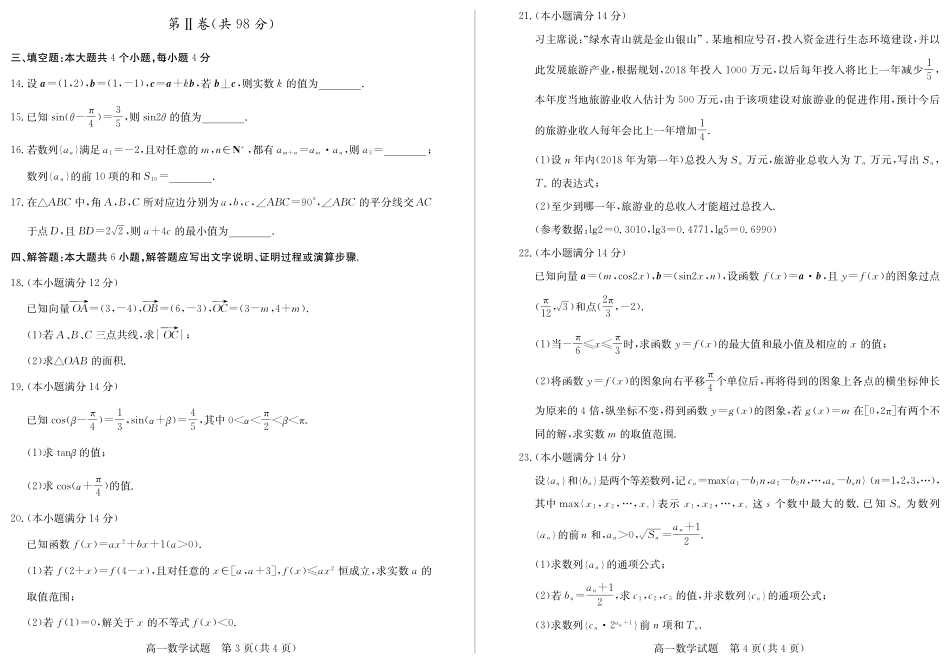 第Ⅱ卷(共 98 分)
三、填空题:本大题共 4 个小题,每小题 4 分
14.设 a=(1,2),b=(1,-1),c=a+kb,若 b⊥c,则实数 k 的值为________.
15.已知 sin(θ-π/4)=3/5,则 sin2θ 的值为________.
16.若数列{aₙ}满足 a₁=-2,且对任意的 m,n∈N*,都有 aₘ₊ₙ=aₘ·aₙ,则 a₃=________;
数列{aₙ}的前 10 项的和 S₁₀=________.
17.在△ABC 中,角 A,B,C 所对应边分别为 a,b,c,∠ABC=90°,∠ABC 的平分线交 AC
于点 D,且 BD=2√2,则 a+4c 的最小值为________.
四、解答题:本大题共 6 小题,解答题应写出文字说明、证明过程或演算步骤.
18.(本小题满分 12 分)
已知向量OA→=(3,-4),OB→=(6,-3),OC→=(3-m,4+m).
(1)若 A、B、C 三点共线,求|OC→|;
(2)求△OAB 的面积.
19.(本小题满分 14 分)
已知 cos(β-π/4)=1/3,sin(α+β)=4/5,其中 0<α<π/2<β<π.
(1)求 tanβ 的值;
(2)求 cos(α+π/4)的值.
20.(本小题满分 14 分)
已知函数 f(x)=ax²+bx+1(a>0).
(1)若 f(2+x)=f(4-x),且对任意的 x∈[a,a+3],f(x)≤ax² 恒成立,求实数 a 的
取值范围;
(2)若 f(1)=0,解关于 x 的不等式 f(x)<0.
高一数学试题 第 3 页(共 4 页)
21.(本小题满分 14 分)
习主席说:“绿水青山就是金山银山”.某地相应号召,投入资金进行生态环境建设,并以
此发展旅游产业,根据规划,2018 年投入 1000 万元,以后每年投入将比上一年减少1/5,
本年度当地旅游业收入估计为 500 万元,由于该项建设对旅游业的促进作用,预计今后
的旅游业收入每年会比上一年增加1/4.
(1)设 n 年内(2018 年为第一年)总投入为 Sₙ 万元,旅游业总收入为 Tₙ 万元,写出 Sₙ,
Tₙ 的表达式;
(2)至少到哪一年,旅游业的总收入才能超过总投入.
(参考数据:lg2=0.3010,lg3=0.4771,lg5=0.6990)
22.(本小题满分 14 分)
已知向量 a=(m,cos2x),b=(sin2x,n),设函数 f(x)=a·b,且 y=f(x)的图象过点
(π/12,√3)和点(2π/3,-2).
(1)当-π/6≤x≤π/3时,求函数 y=f(x)的最大值和最小值及相应的 x 的值;
(2)将函数 y=f(x)的图象向右平移π/4个单位后,再将得到的图象上各点的横坐标伸长
为原来的 4 倍,纵坐标不变,得到函数 y=g(x)的图象,若 g(x)=m 在[0,2π]有两个不
同的解,求实数 m 的取值范围.
23.(本小题满分 14 分)
设{aₙ}和{bₙ}是两个等差数列,记 cₙ=max{a₁-b₁n,a₂-b₂n,…,aₙ-bₙn} (n=1,2,3,…),
其中 max{x₁,x₂,…,xₛ}表示 x₁,x₂,…,xₛ 这 s 个数中最大的数.已知 Sₙ 为数列
{aₙ}的前 n 和,aₙ>0,√Sₙ=(aₙ+1)/2.
(1)求数列{aₙ}的通项公式;
(2)若 bₙ=(aₙ+1)/2,求 c₁,c₂,c₃ 的值,并求数列{cₙ}的通项公式;
(3)求数列{cₙ·2^(aₙ+1)}前 n 项和 Tₙ.
高一数学试题 第 4 页(共 4 页)